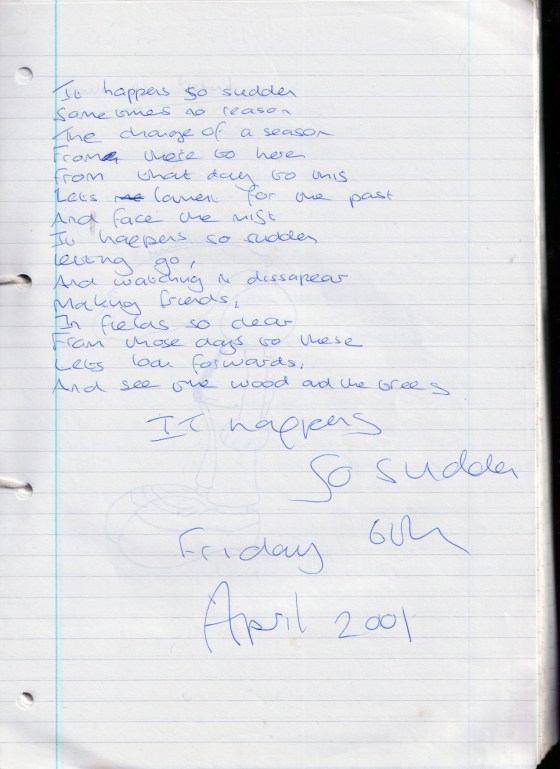 It happens so sudden
Sometimes no reason
The change of a season
From there to here
From that day to this
Lets lament for the past
And face the mist
It happens so sudden
letting go,
And watching it dissapear
Making friends,
In fields so clear
From those days to these
Lets look forwards,
And see the wood and the trees
It happens
So sudden
Friday 6th
April 2001